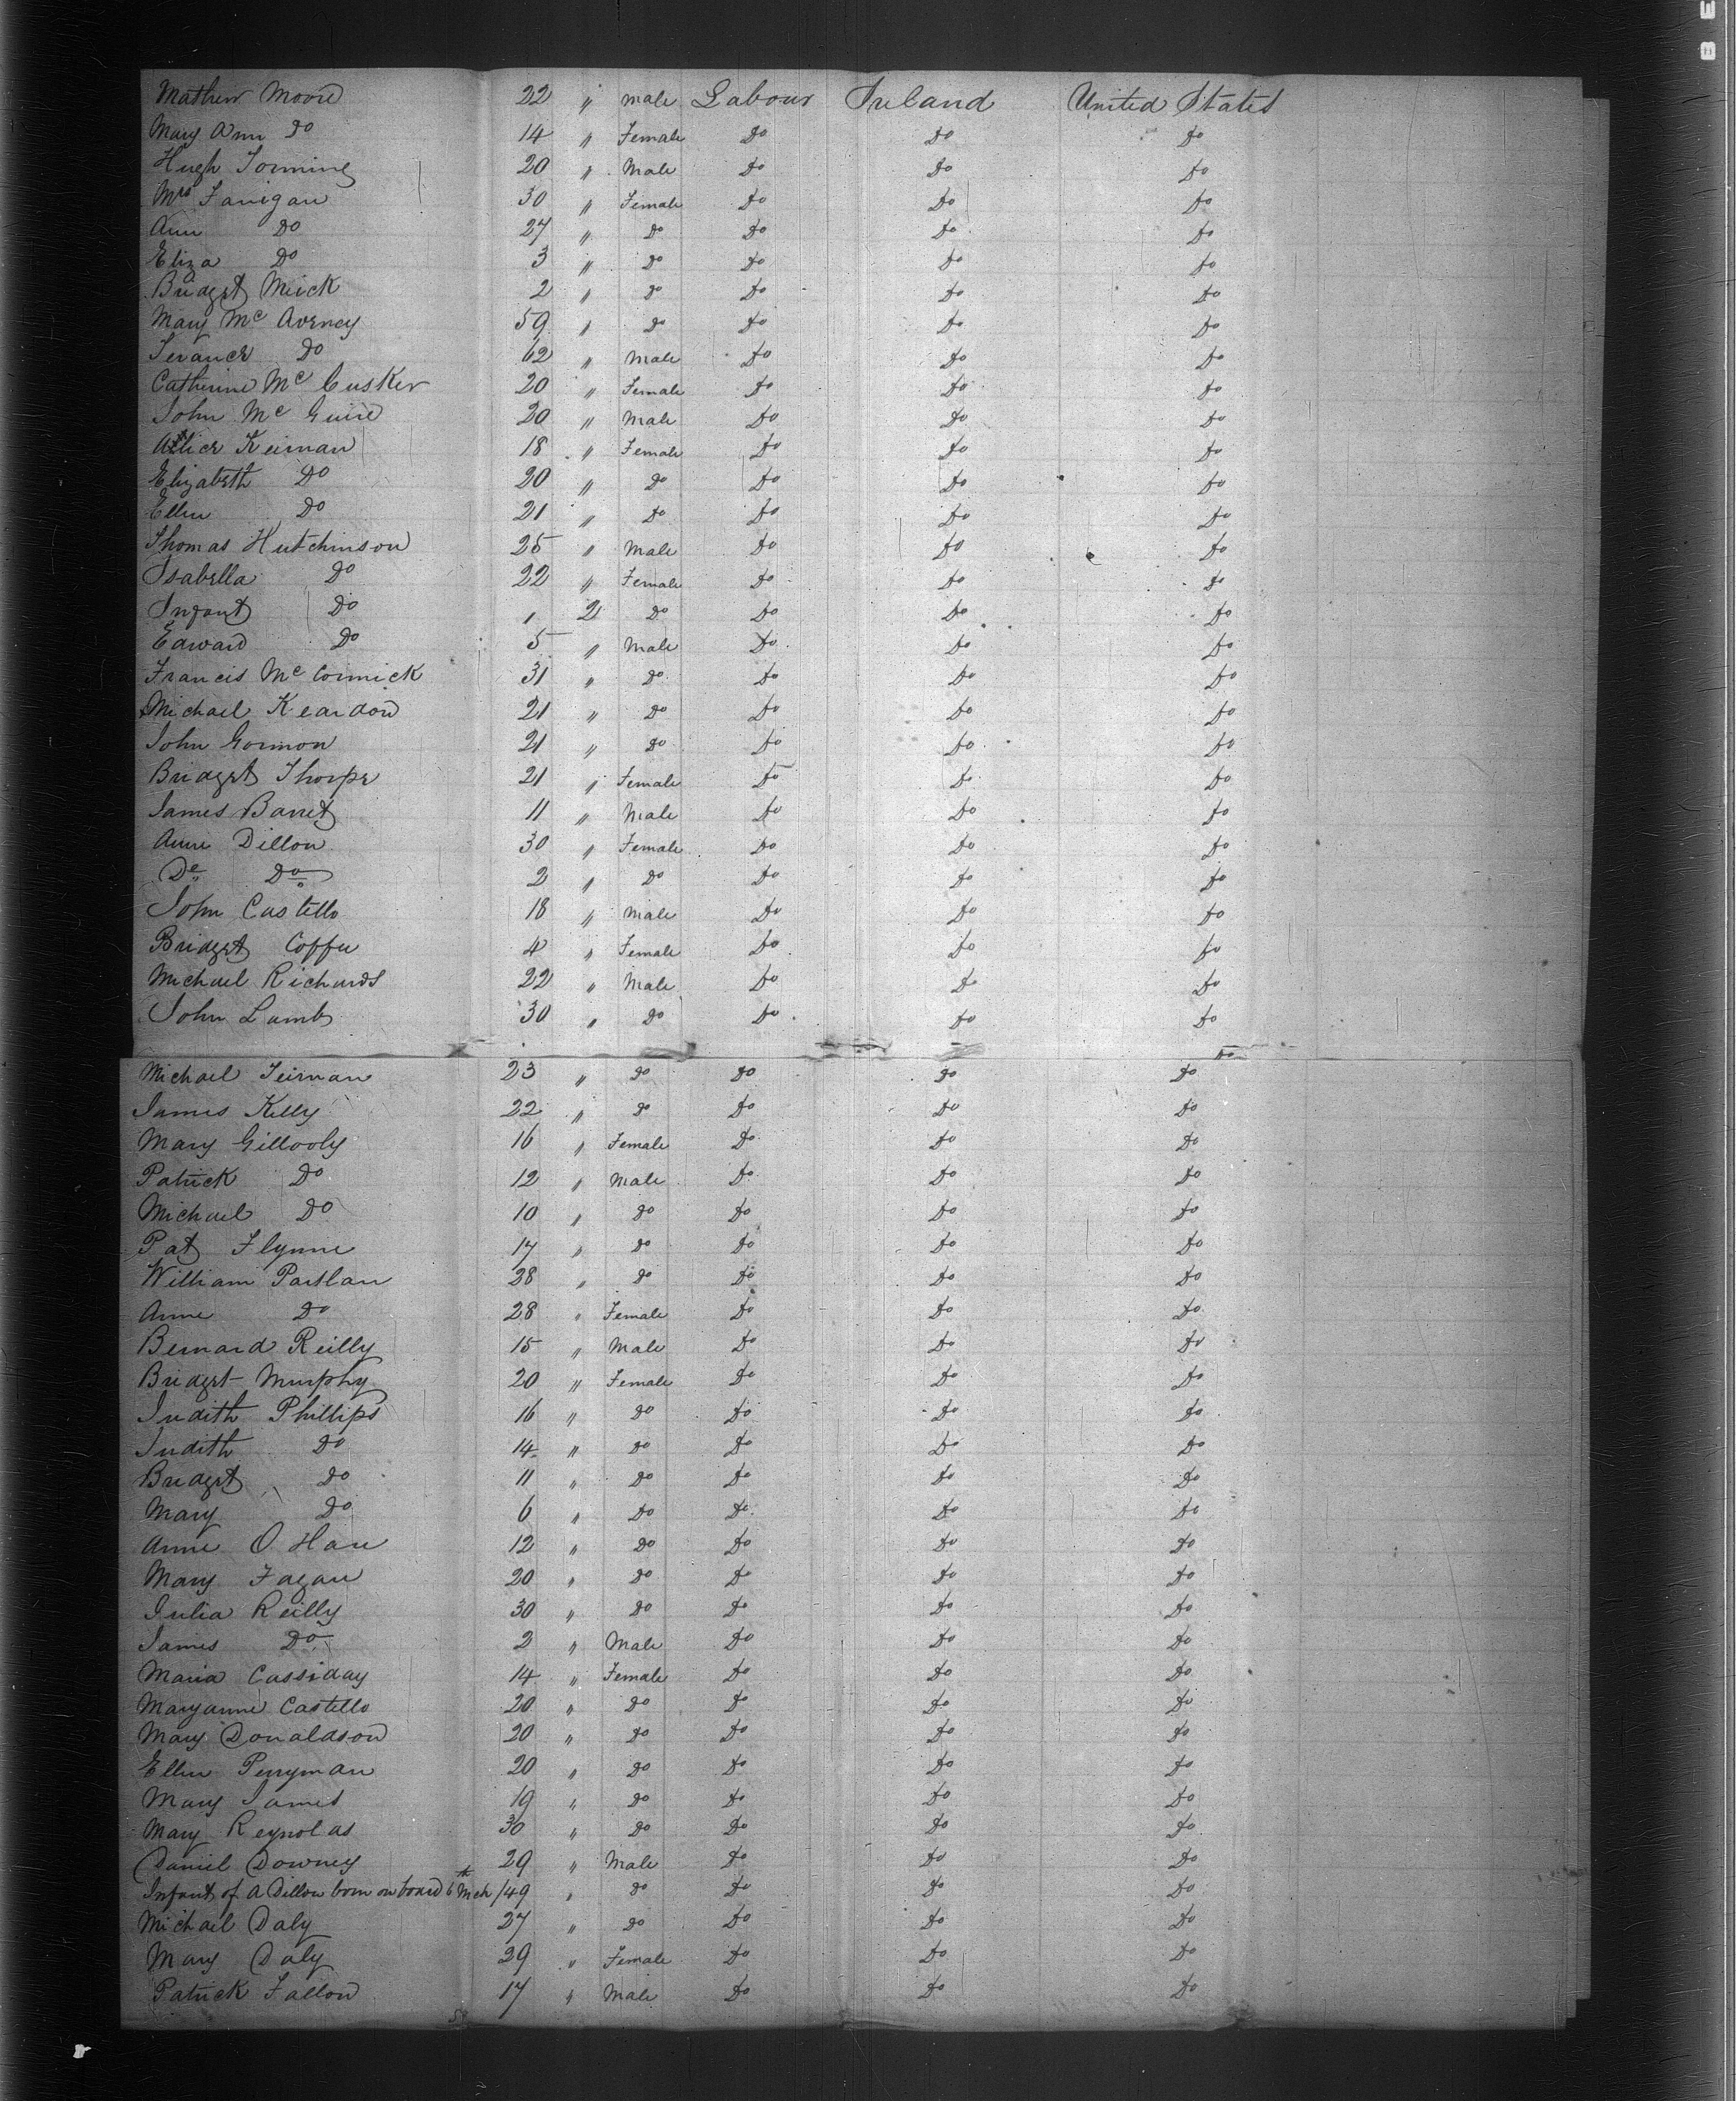 Mathew Moore 22 " Male Labour Ireland United States
Mary Ann Do 14 " Female Do Do Do
Hugh 20 " Male Do Do Do
Mrs Fanigan 30 " Female Do Do Do
Ann Do 27 " Do Do Do Do
Eliza Do 3 " Do Do Do Do
Bridget Meick 2 " Do Do Do Do
Mary Mc Averney 59 " Do Do Do Do
Terance Do 62 " Male Do Do Do
Catherine Mc Cusker 20 " Female Do Do Do
John Mc Guire 20 " Male Do Do Do
Allice Keirnan 18 " Female Do Do Do
Elizabeth Do 20 " Do Do Do Do
Ellen Do 21 " Do Do Do Do
Thomas Hutchinson 25 " Male Do Do Do
Isabella Do 22 " Female Do Do Do
Infant Do , 2 Do Do Do Do
Edward Do 5 " Male Do Do Do
Francis Mc Cormick 31 " Do Do Do Do
Michael Keardon 21 " Do Do Do Do
John Gormon 21 " Do Do Do Do
Bridget Thorpe 21 " Female Do Do Do
James Barret 11 " Male Do Do Do
Anne Dillon 30 " Female Do Do Do
Do Do 2 " Do Do Do Do
John Castello 18 " Male Do Do Do
Bridget Coffee 4 " Female Do Do Do
Michael Richards 22 " Male Do Do Do
John Lamb 30 " Do Do Do Do
Michael Teirnan 23 " Do Do Do Do
James Kelly 22 " Do Do Do Do
Mary Gillooly 16 " Female Do Do Do
Patrick Do 12 " Male Do Do Do
Michael Do 10 " Do Do Do Do
Pat Flynne 17 " Do Do Do Do
William Partlan 28 " Do Do Do Do
Anne Do 28 " Female Do Do Do
Bernard Reilly 15 " Male Do Do Do
Bridget Murphy 20 " Female Do Do Do
Judith Phillips 16 " Do Do Do Do
Judith Do 14 " Do Do Do Do
Bridget Do 11 " Do Do Do Do
Mary Do 6 " Do Do Do Do
Anne O Hare 12 " Do Do Do Do
Mary Fagan 20 " Do Do Do Do
Julia Reilly 30 " Do Do Do Do
James Do 2 " Male Do Do Do
Maria Cassiday 14 " Female Do Do Do
Maryanne Castello 20 " Do Do Do Do
Mary Donaldson 20 " Do Do Do Do
Ellen Perryman 20 " Do Do Do Do
Mary James 19 " Do Do Do Do
Mary Reynolds 30 " Do Do Do Do
Daniel Downey 29 " Male Do Do Do
Infant of A Dillon born on board 6th Mch /49 " Do Do Do Do
Michael Daly 27 " Do Do Do Do
Mary Daly 29 " Female Do Do Do
Patrick Fallon 17 " Male Do Do Do